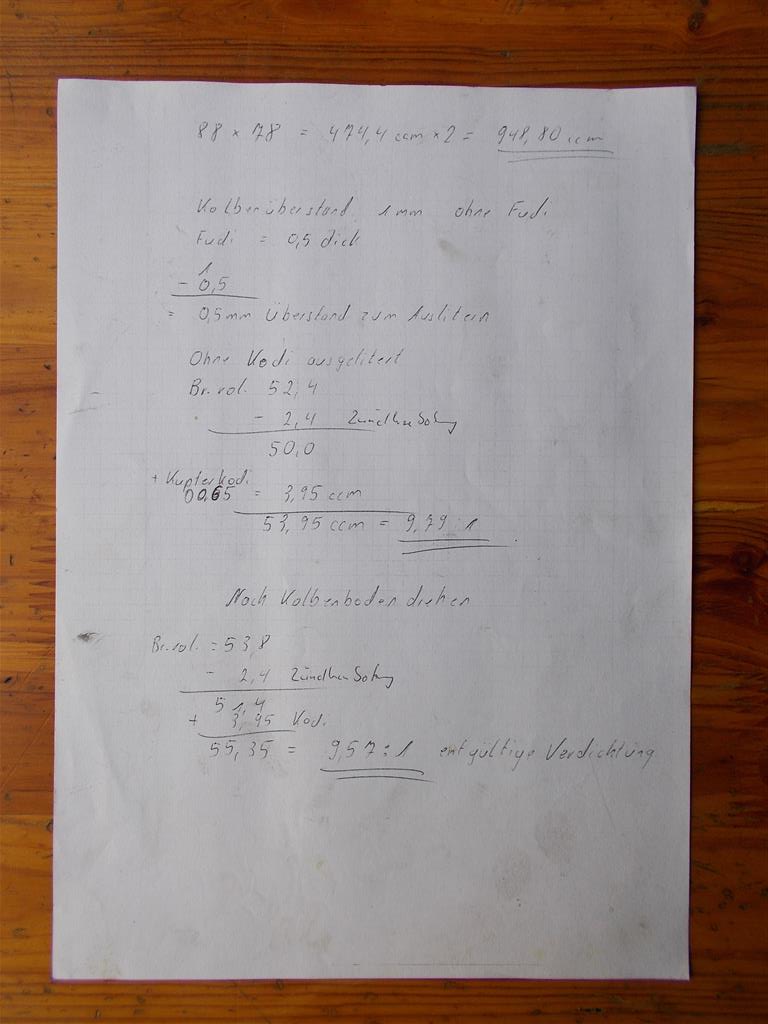 88 × 78 = 474,4 ccm × 2 = 948,80 ccm
Kolbenüberstand 1 mm ohne Fudi
Fudi = 0,5 dick
1
- 0,5
= 0,5 mm Überstand zum Auslitern
Ohne Kodi ausgelitert
Br.vol. 52,4
- 2,4 Zündker Bohrg
50,0
+ Kupferkodi
00,65 = 3,95 ccm
53,95 ccm = 9,79 : 1
Nach Kolbenboden drehen
Br.vol. = 53,8
- 2,4 Zündker Bohrg
51,4
+ 3,95 Kodi
55,35 = 9,57 : 1 entgültige Verdichtung